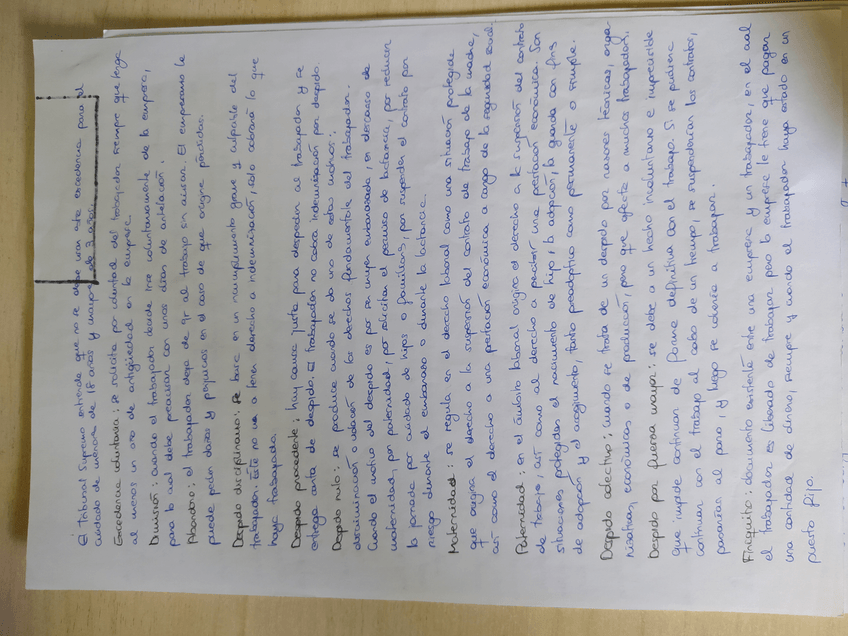 El Tribunal Supremo entiende que no se debe usar esta excedencia para el
cuidado de menores de 18 años y mayores de 3 años.
Excedencia voluntaria: se solicita por voluntad del trabajador siempre que tenga
al menos un año de antigüedad en la empresa.
Dimisión: cuando el trabajador decide irse voluntariamente de la empresa,
para lo cual debe preavisar con unos días de antelación.
Abandono: el trabajador deja de ir al trabajo sin avisar. El empresario le
puede pedir daños y perjuicios en el caso de que origine pérdidas.
Despido disciplinario: se basa en un incumplimiento grave y culpable del
trabajador. Éste no va a tener derecho a indemnización, solo cobrará lo que
haya trabajado.
Despido procedente: hay causa justa para despedir al trabajador y se
entrega carta de despido. El trabajador no cobra indemnización por despido.
Despido nulo: se produce cuando se da uno de estos motivos:
discriminación o violación de los derechos fundamentales del trabajador.
Cuando el motivo del despido es por ser mujer embarazada, en descanso de
maternidad, por paternidad, por solicitar el permiso de lactancia, por reducir
la jornada por cuidado de hijos o familiares, por suspender el contrato por
riesgo durante el embarazo o durante la lactancia.
Maternidad: se regula en el derecho laboral como una situación protegida
que origina el derecho a la suspensión del contrato de trabajo de la madre,
así como el derecho a una prestación económica a cargo de la seguridad social.
Paternidad: en el ámbito laboral origina el derecho a la suspensión del contrato
de trabajo, así como al derecho a percibir una prestación económica. Son
situaciones protegidas el nacimiento de hijo, la adopción, la guarda con fines
de adopción y el acogimiento, tanto preadoptivo como permanente o simple.
Despido colectivo: cuando se trata de un despido por razones técnicas, orga-
nizativas, económicas o de producción, pero que afecta a muchos trabajadores.
Despido por fuerza mayor: se debe a un hecho involuntario e imprevisible
que impide continuar de forma definitiva con el trabajo. Si se pudiese
continuar con el trabajo al cabo de un tiempo, se suspenderían los contratos,
pasarían al paro, y luego se volvería a trabajar.
Finiquito: documento existente entre una empresa y un trabajador, en el cual
el trabajador es liberado de trabajar pero la empresa le tiene que pagar
una cantidad de dinero, siempre y cuando el trabajador haya estado en un
puesto fijo.